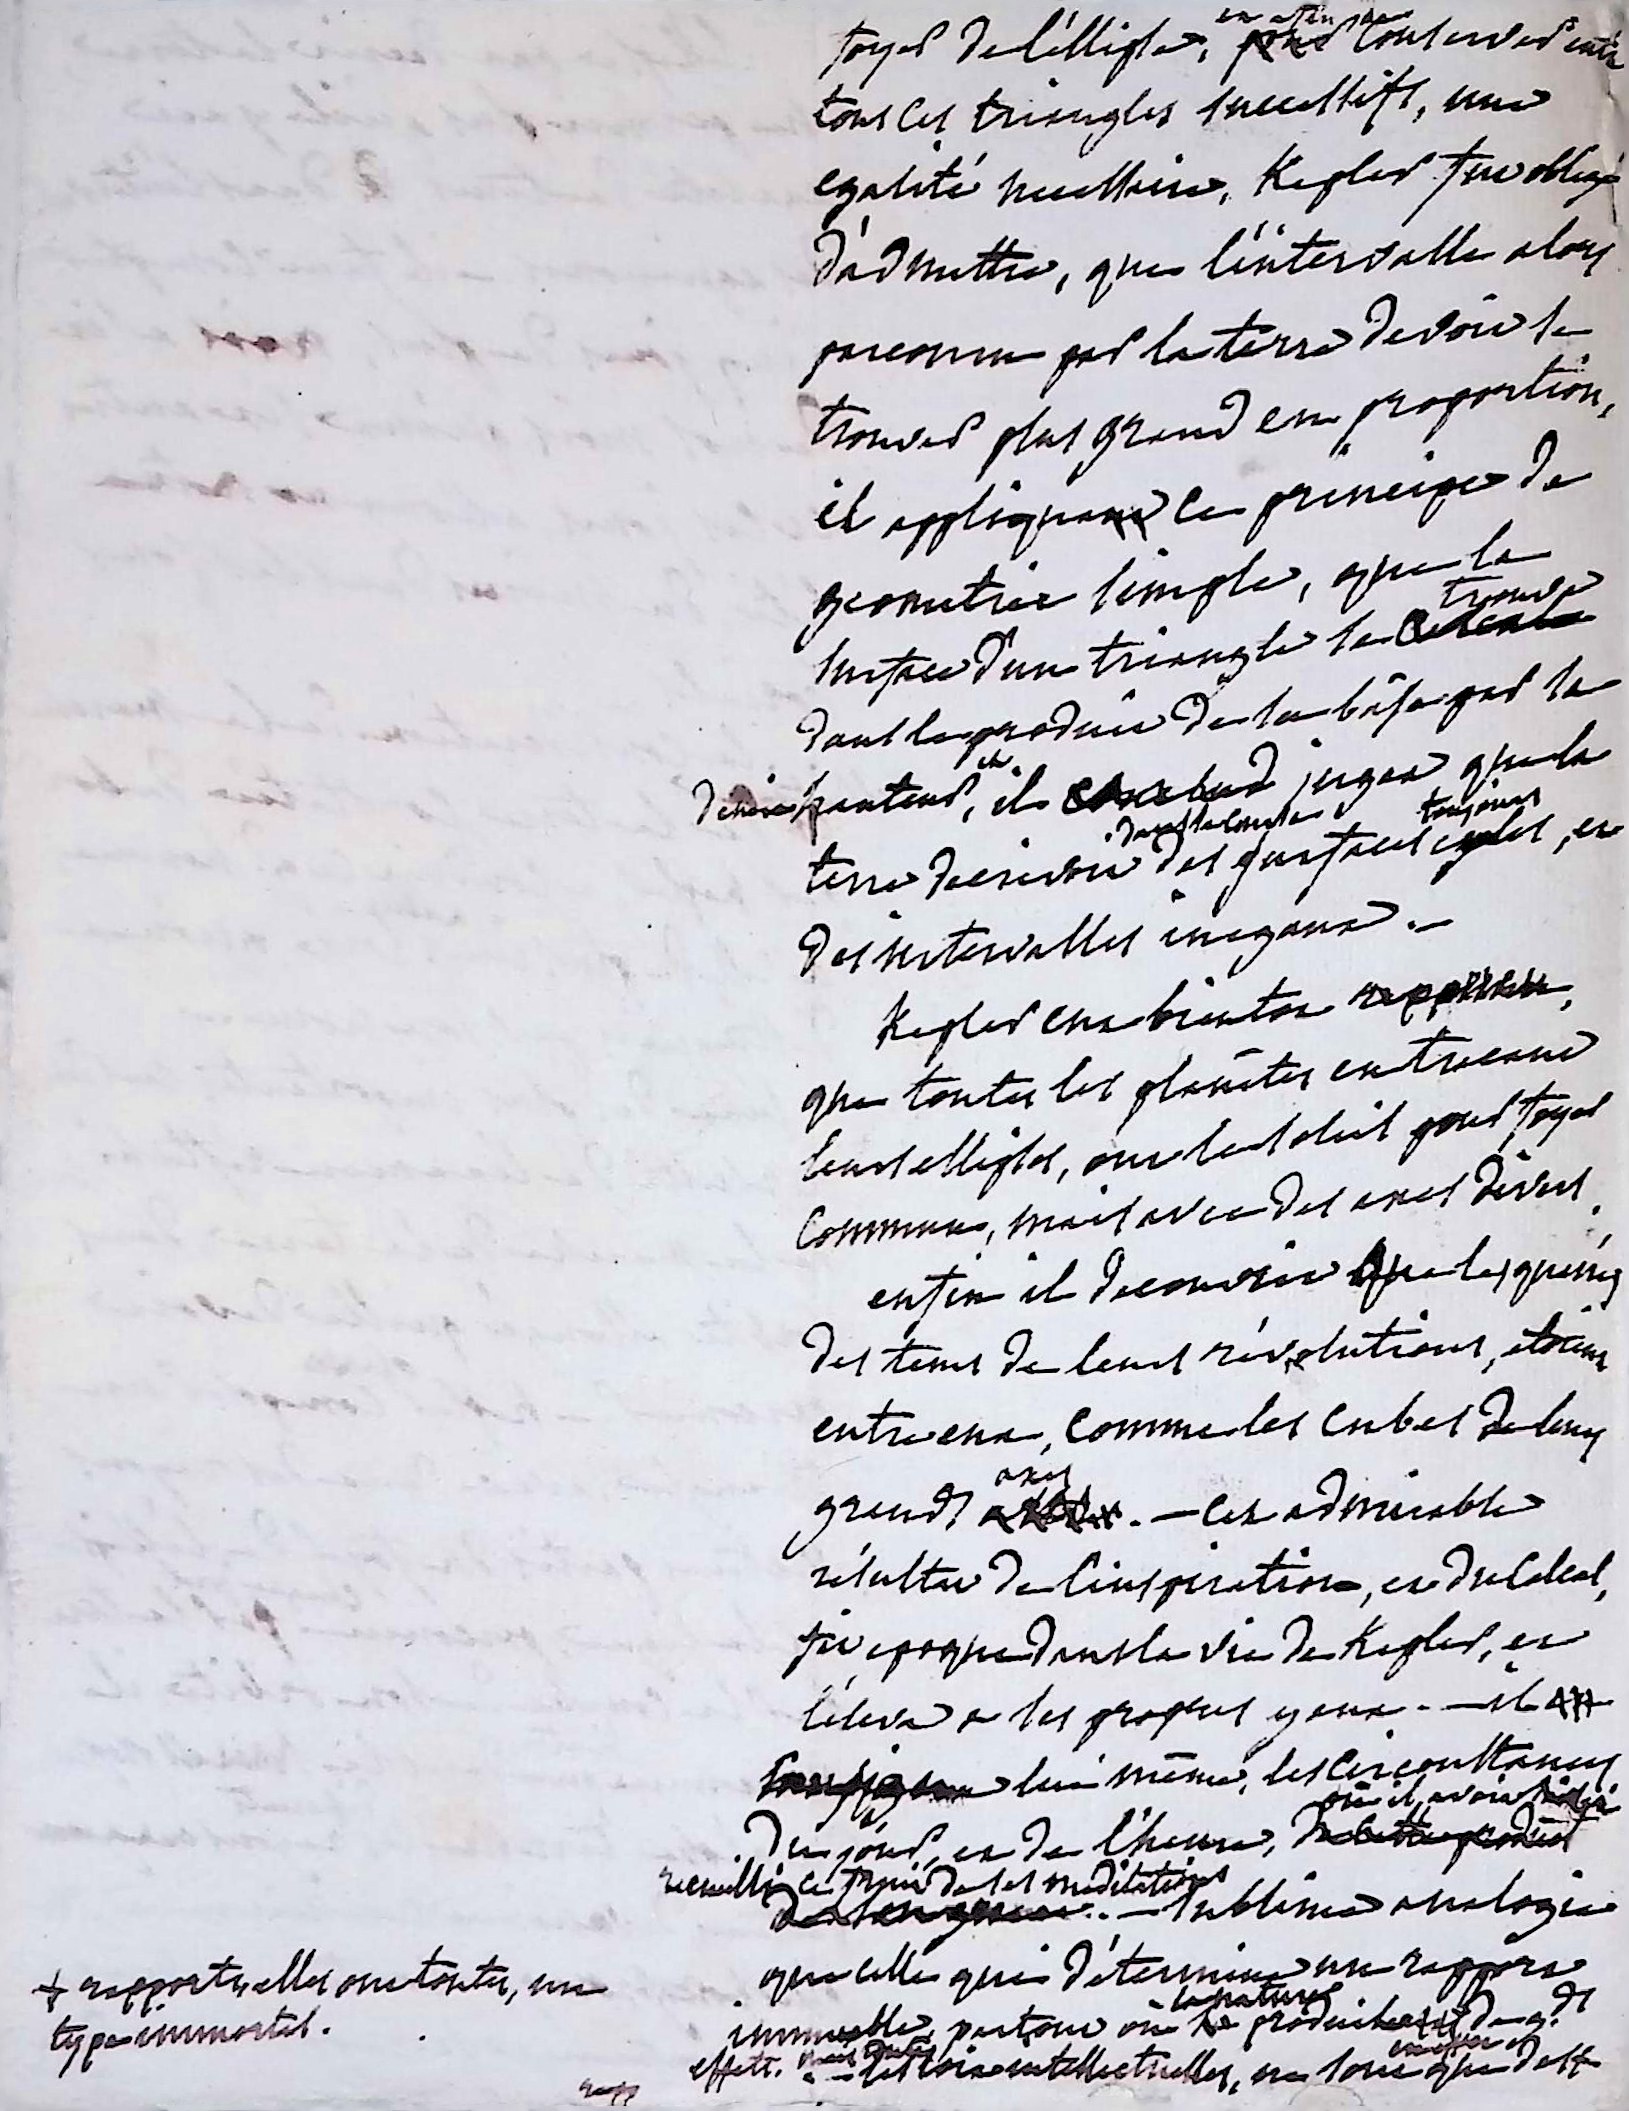 foyer de l'ellipse, en afin de conserver entre
tous ces triangles successifs, une
egalité necessaire, Kepler fut obligé
d'admettre, que l'intervalle alors
parcouru par la terre devoit se
trouver plus grand en proportion,
il appliqua ce principe de
geometrie simple, que la
trouve
surface d'un triangle se
dans le produit de sa base par sa
demie hauteur, et il jugea que la
dans sa course toujours
terre decrivoit des surfaces egales, et
des intervalles inegaux. —
Kepler eut bientot
que toutes les planètes en tracant
leurs ellipses, ont le soleil pour foyer
commun, mais avec des axes divers.
enfin il decouvrit que les quarrés
des tems de leurs révolutions, etoient
entre eux, comme les cubes de leurs
axes
grands . — cet admirable
résultat de l'inspiration, et du calcul,
fit epoque dans la vie de Kepler, et
l'éleva a ses propres yeux. — il
lui même, les circonstances
où il avoit
du jour, et de l'heure,
recueilli ce fruit de ses meditations
. — sublime analogie
que celle qui détermine un rapport
la nature
immuable, partout où produit de gds
effets. — les loix intellectuelles, ne sont que des +
+ rapports, elles ont toutes, un
type immortel.
rapp